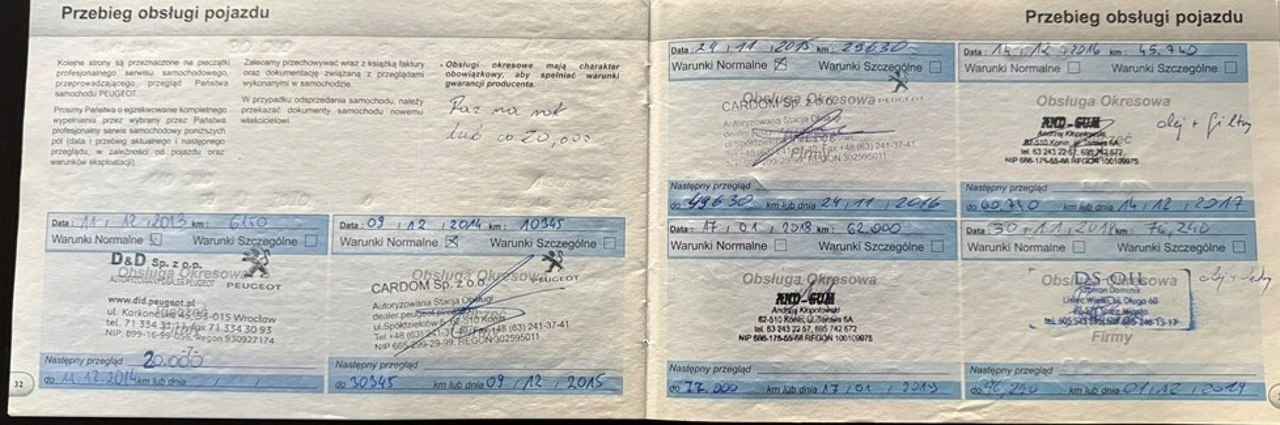 Przebieg obsługi pojazdu
Kolejne strony są przeznaczone na pieczątki
profesjonalnego serwisu samochodowego,
przeprowadzającego przegląd Państwa
samochodu PEUGEOT.
Prosimy Państwa o egzekwowanie kompletnego
wypełnienia przez wybrany przez Państwa
profesjonalny serwis samochodowy poniższych
pól (data i przebieg aktualnego i następnego
przeglądu, w zależności od pojazdu oraz
warunków eksploatacji).
Zalecamy przechowywać wraz z książką faktury
oraz dokumentację związaną z przeglądami
wykonanymi w samochodzie.
W przypadku odsprzedania samochodu, należy
przekazać dokumenty samochodu nowemu
właścicielowi.
- Obsługi okresowe mają charakter
obowiązkowy, aby spełniać warunki
gwarancji producenta.
Raz na rok
lub co 20,000
Data : 11 , 12 , 2013 km : 6150
Warunki Normalne Warunki Szczególne
Obsługa Okresowa
D&D Sp. z o.o.
AUTORYZOWANY DEALER PEUGEOT
PEUGEOT
www.did.peugeot.pl
ul. Karkonoska 45, 53-015 Wrocław
tel. 71 334 31 fax 71 334 30 93
NIP: 899-16-99-056, Regon 930927174
Następny przegląd 20.000
do 11.12.2014 km lub dnia
32
Data : 09 , 12 , 2014 km : 10345
Warunki Normalne Warunki Szczególne
Obsługa Okresowa
PEUGEOT
CARDOM Sp. z o.o.
Autoryzowana Stacja Obsługi
dealer Peugeot
ul.Spółdzielców 62-510 Konin
Tel +48 (63) Fax +48 (63) 241-37-41
NIP 665-299-29-99, REGON 302595011
Następny przegląd
do 30345 km lub dnia 09 , 12 , 2015
Przebieg obsługi pojazdu
Data : 24 , 11 , 2015 km : 29630
Warunki Normalne Warunki Szczególne
Obsługa Okresowa
PEUGEOT
CARDOM Sp. z o.o.
Autoryzowana Stacja Obsługi
dealer
Fax +48 (63) 241-37-41
REGON 302595011
Następny przegląd
do 49630 km lub dnia 24 , 11 , 2016
Data : 14 , 12 , 2016 km : 45.740
Warunki Normalne Warunki Szczególne
Obsługa Okresowa
AND-GUM
Andrzej Kłopotowski
62-510 Konin, ul. Torowa 6A
tel. 63 243 22 57, 695 742 672
NIP 665-175-55-68 REGON 100109975
olej + filtry
Następny przegląd
do 60.740 km lub dnia 14 , 12 , 2017
Data : 17 , 01 , 2018 km : 62.000
Warunki Normalne Warunki Szczególne
Obsługa Okresowa
AND-GUM
Andrzej Kłopotowski
62-510 Konin, ul. Torowa 6A
tel. 63 243 22 57, 695 742 672
NIP 665-175-55-68 REGON 100109975
Następny przegląd
do 77.000 km lub dnia 17 , 01 , 2019
Data : 30 , 11 , 2018 km : 76,240
Warunki Normalne Warunki Szczególne
Obsługa Okresowa
DS OIL
Dominik
Firmy
Następny przegląd
do 96,240 km lub dnia 01 , 12 , 2019